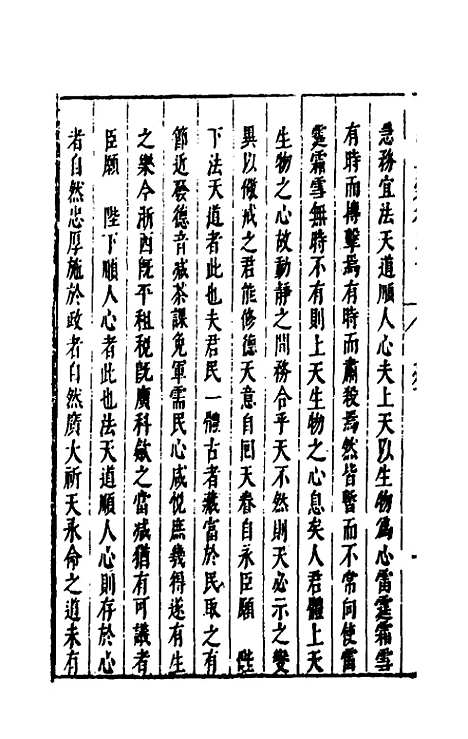 急務宜法天道順人心夫上天以生物爲心雷霆霜雪
有時而搏擊焉有時而肅殺焉然皆暫而不常向使雷
霆霜雪無時不有則上天生物之心息矣人君體上天
生物之心故動靜之間務合乎天不然則天必示之變
異以儆戒之君能修德天意自囘天眷自永臣願　陛
下法天道者此也夫君民一體古者藏富於民取之有
節近發德音減茶課免軍需民心咸悅庶幾得遂有生
之樂今浙西旣平租稅旣廣科斂之當减猶有可議者
臣願　陛下順人心者此也法天道順人心則存於心
者自然忠厚施於政者自然廣大祈天永命之道未有